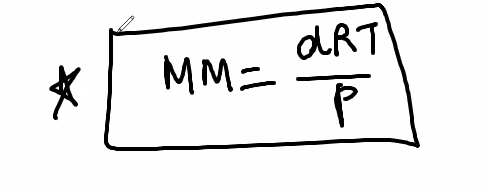 * MM = dRT/P